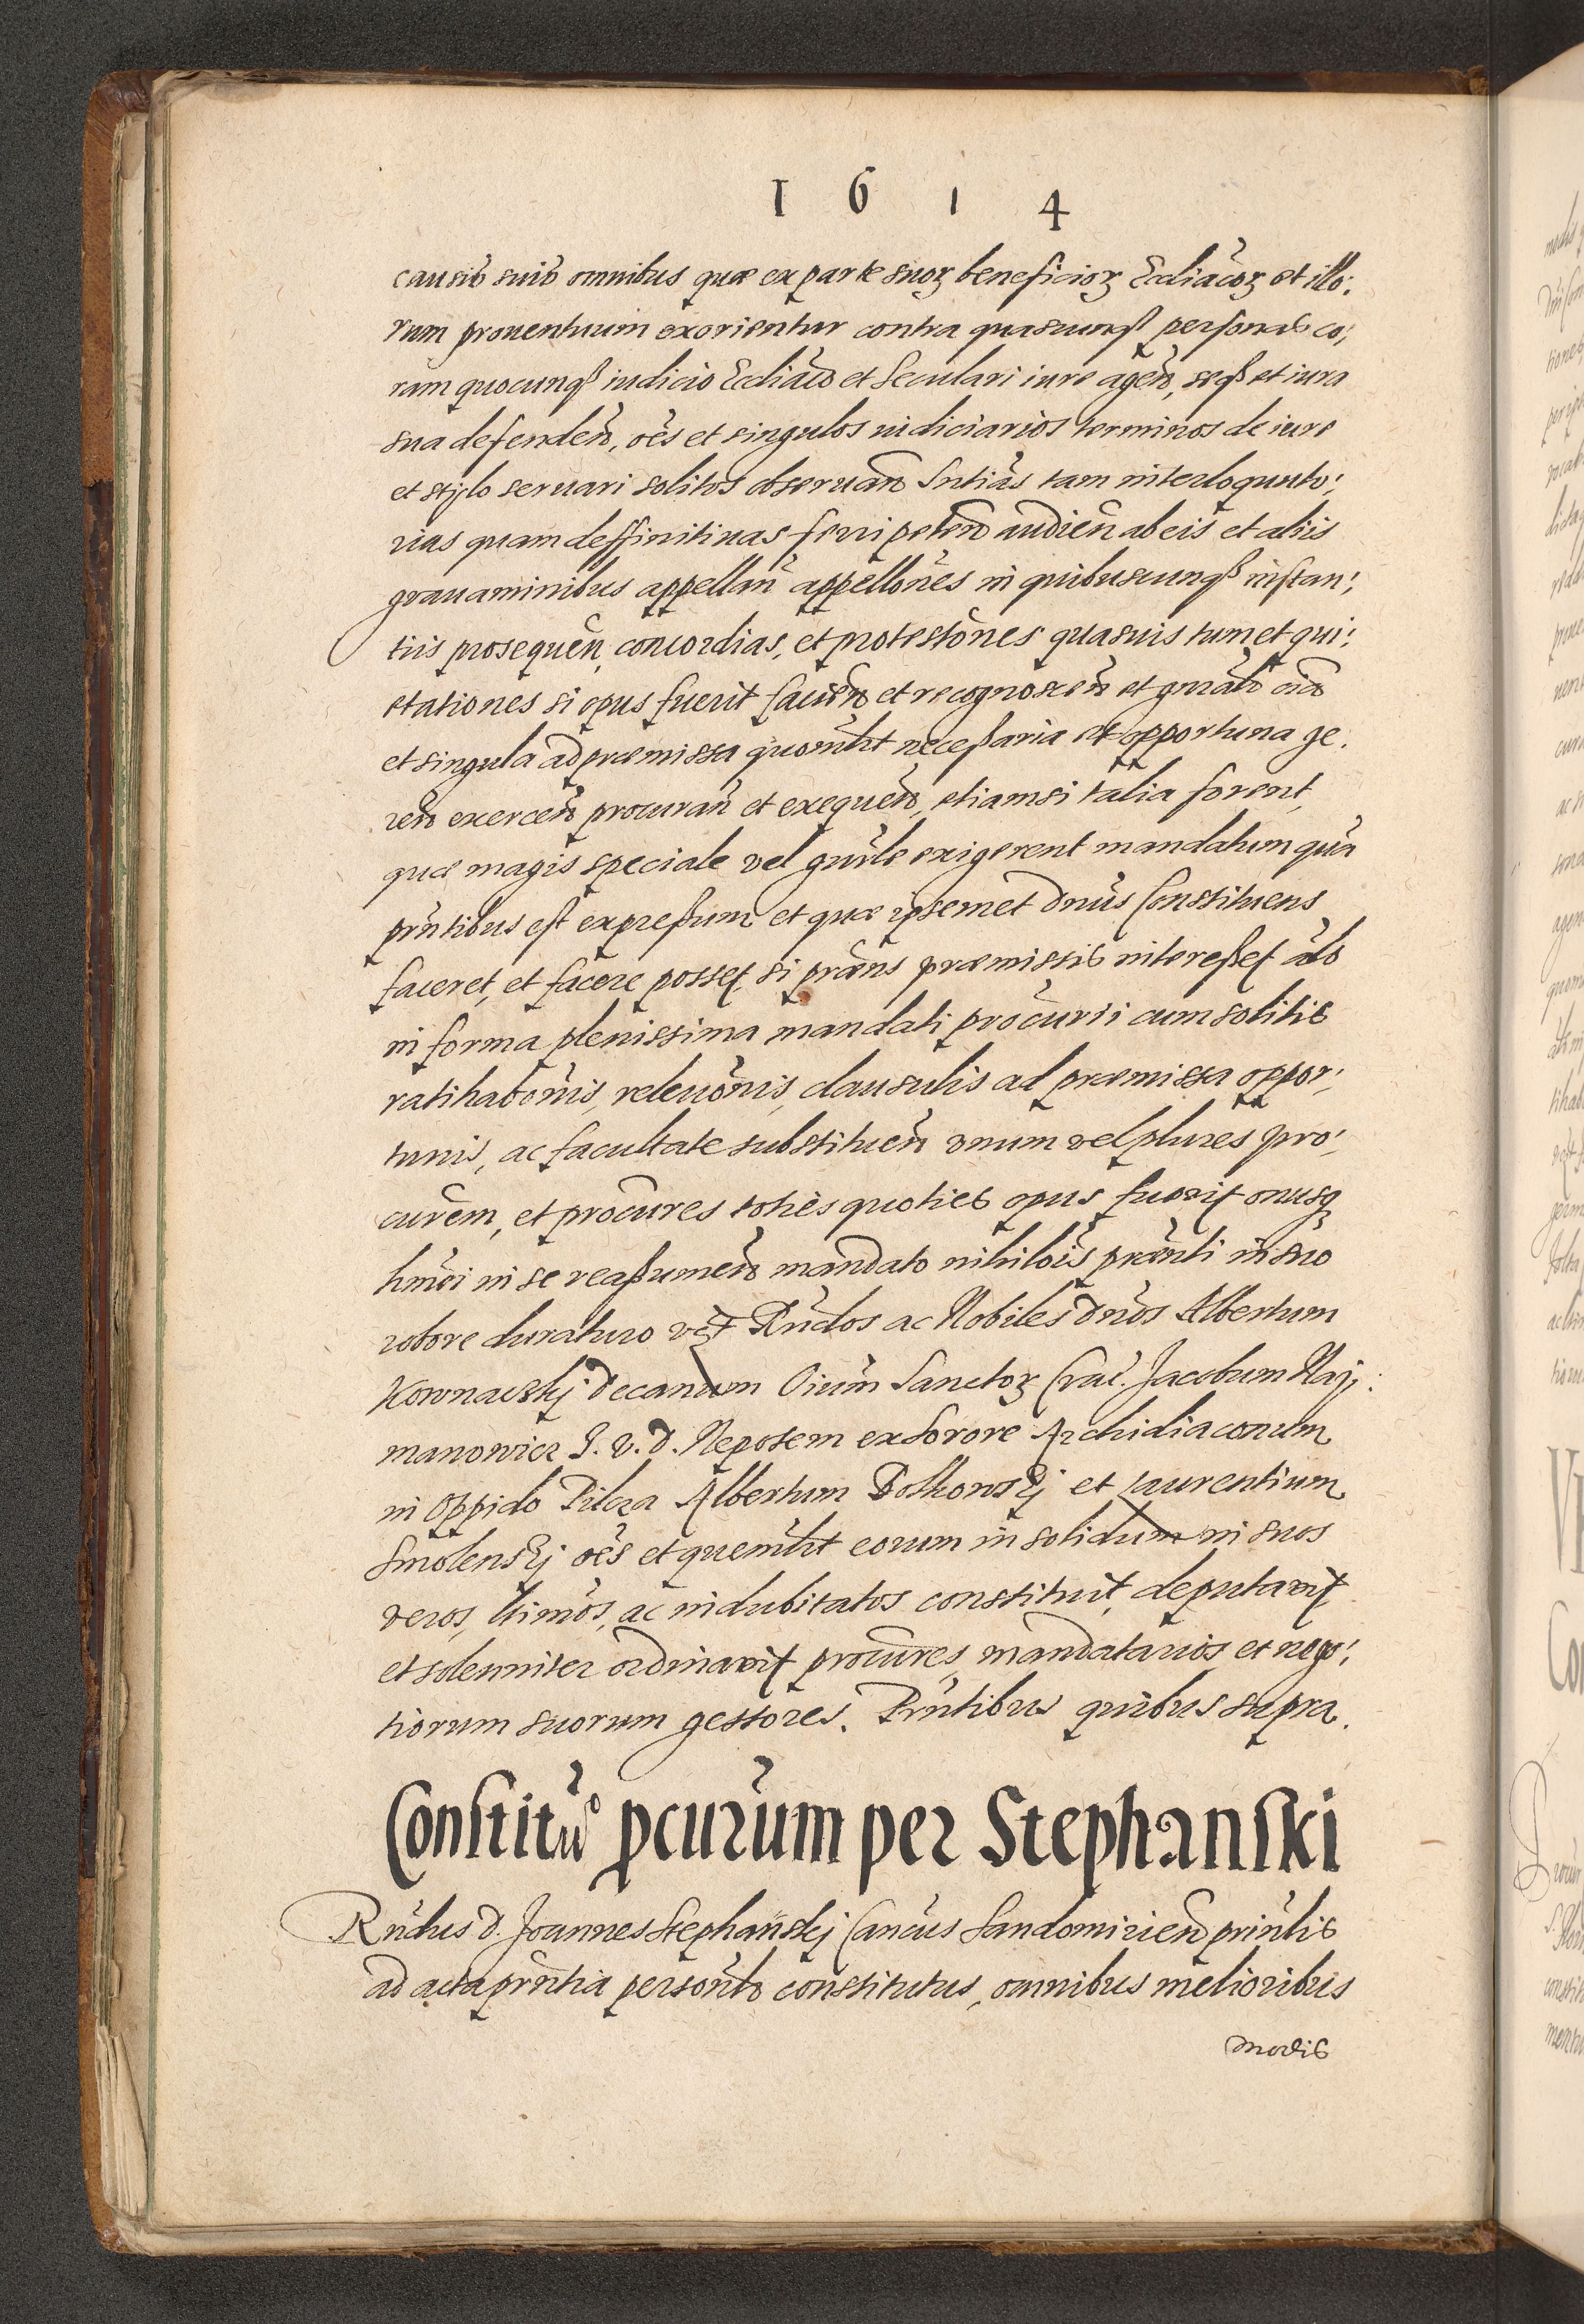 1 6 1 4
causis suis omnibus quæ ex parte suoꝝ beneficioꝝ Eccliãcoꝝ et illo:
rum prouentuum exorientur contra quascunqꝫ personas co:
ram quocunqꝫ iudicio Eccliãco et Seculari iure agen̄, seqꝫ et iura
sua defenden̄, oẽs et singulos iudiciarios terminos de iure
et stylo seruari solitos obseruan̄ Sntiãs tam interloquuto:
rias quam deffinitiuas ferri peten̄ audien̄ ab eis et aliis
grauaminibus appellan̄ appellões in quibuscunqꝫ instan:
tiis prosequen̄, concordias, et protestões quasuis tum et qui:
etationes si opus fuerit facien̄ et recognoscen̄ et gnrãlr oĩa
et singula ad præmissa quomlt necessaria et opportuna ge:
ren̄ exercen̄ procuran̄ et exequen̄, etiamsi talia forent,
quæ magis speciale vel gnrãle exigerent mandatum quã
pñtibus est expressum et quæ ipsemet Dnũs Constituens
faceret, et facere posset, si præns præmissis interesset als
in forma plenissima mandati procũrii cum solitis
ratihabõnis, releuõnis, clausulis ad præmissa oppor:
tunis, ac facultate substituen̄ vnum vel plures pro:
curẽm, et procũres toties quoties opus fuerit onusqꝫ
hmõi in se reassumen̄ mandato nihilõis prænti in suo
robore duraturo vꝫt Rñdos ac Nobiles Dnõs Albertum
Kownacskj Decanum Oiũm Sanctoꝝ Crac̃. Jacobum Naÿ:
manowicz J. V. D. Nepotem ex Sorore Archidiaconum
in Oppido Pilcza Albertum Bolkowskj et Laurentium
Smolenskj oẽs et quemlt eorum in solidum in suos
veros, ltimõs, ac indubitatos constituit, deputauit
et solenniter ordinauit procũres, mandatarios et nego:
tiorum suorum gestores. Pñtibus quibus supra.
Constitũo pcurũm per Stephanski
Rñdus D. Joannes Stephanskj Cancũs Sandomirien̄ prinlis
ad acta pñtia persõnlr constitutus, omnibus melioribus
modis